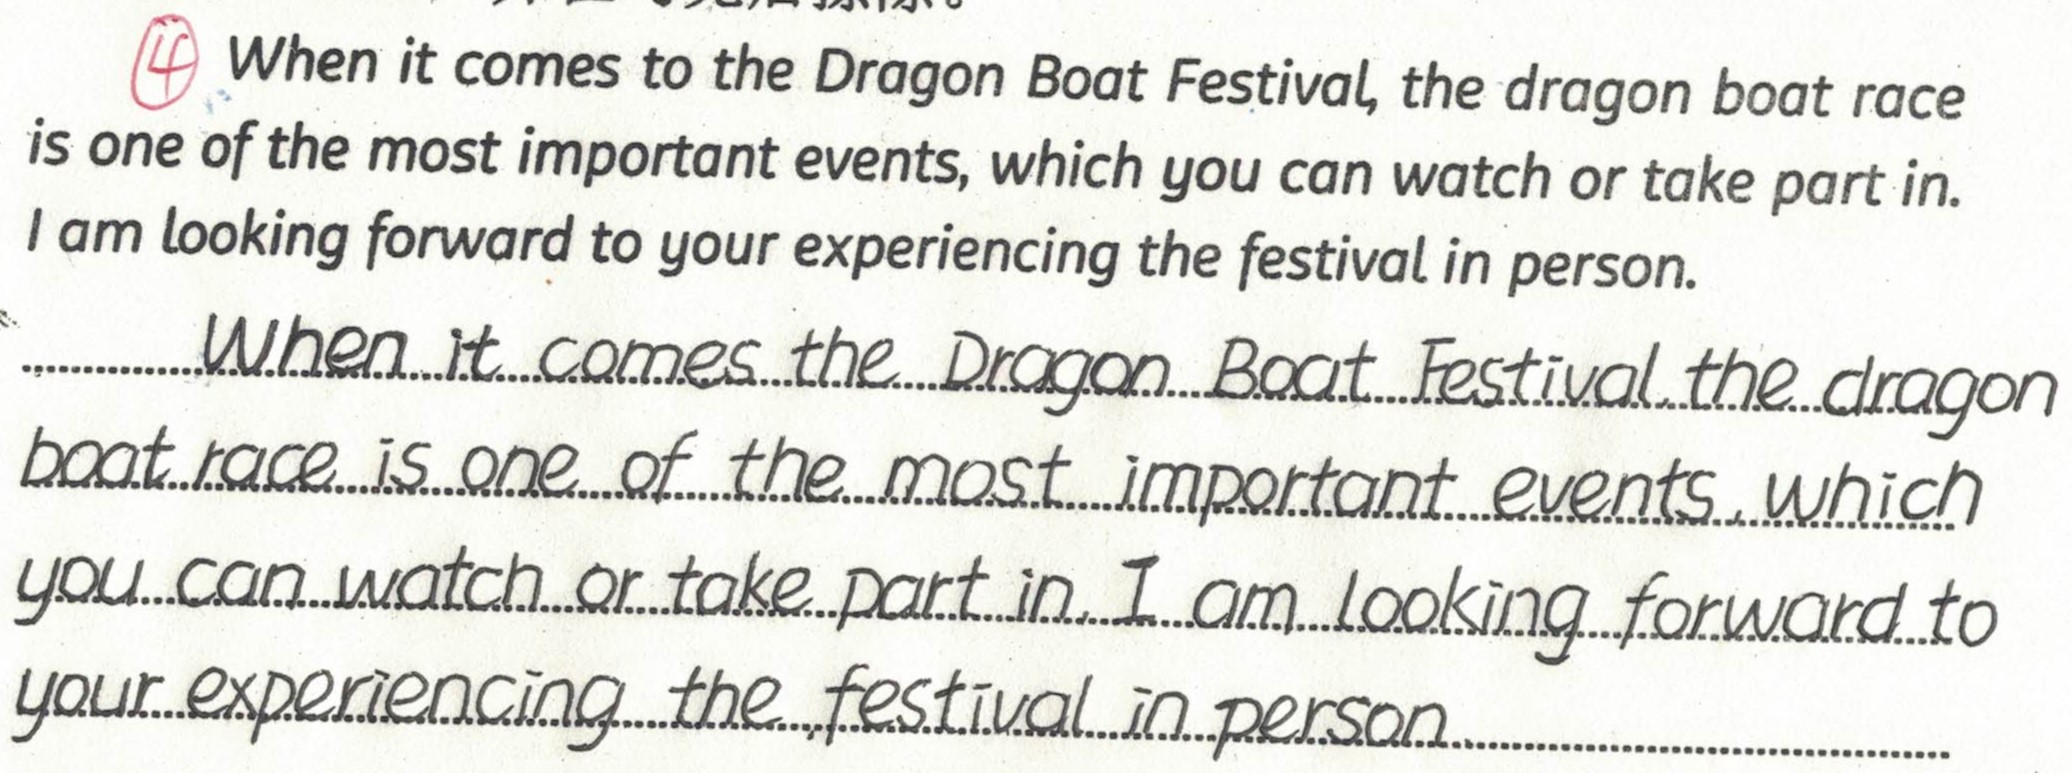 ④ When it comes to the Dragon Boat Festival, the dragon boat race
is one of the most important events, which you can watch or take part in.
I am looking forward to your experiencing the festival in person.
When it comes the Dragon Boat Festival, the dragon
boat race is one of the most important events, which
you can watch or take part in. I am looking forward to
your experiencing the festival in person